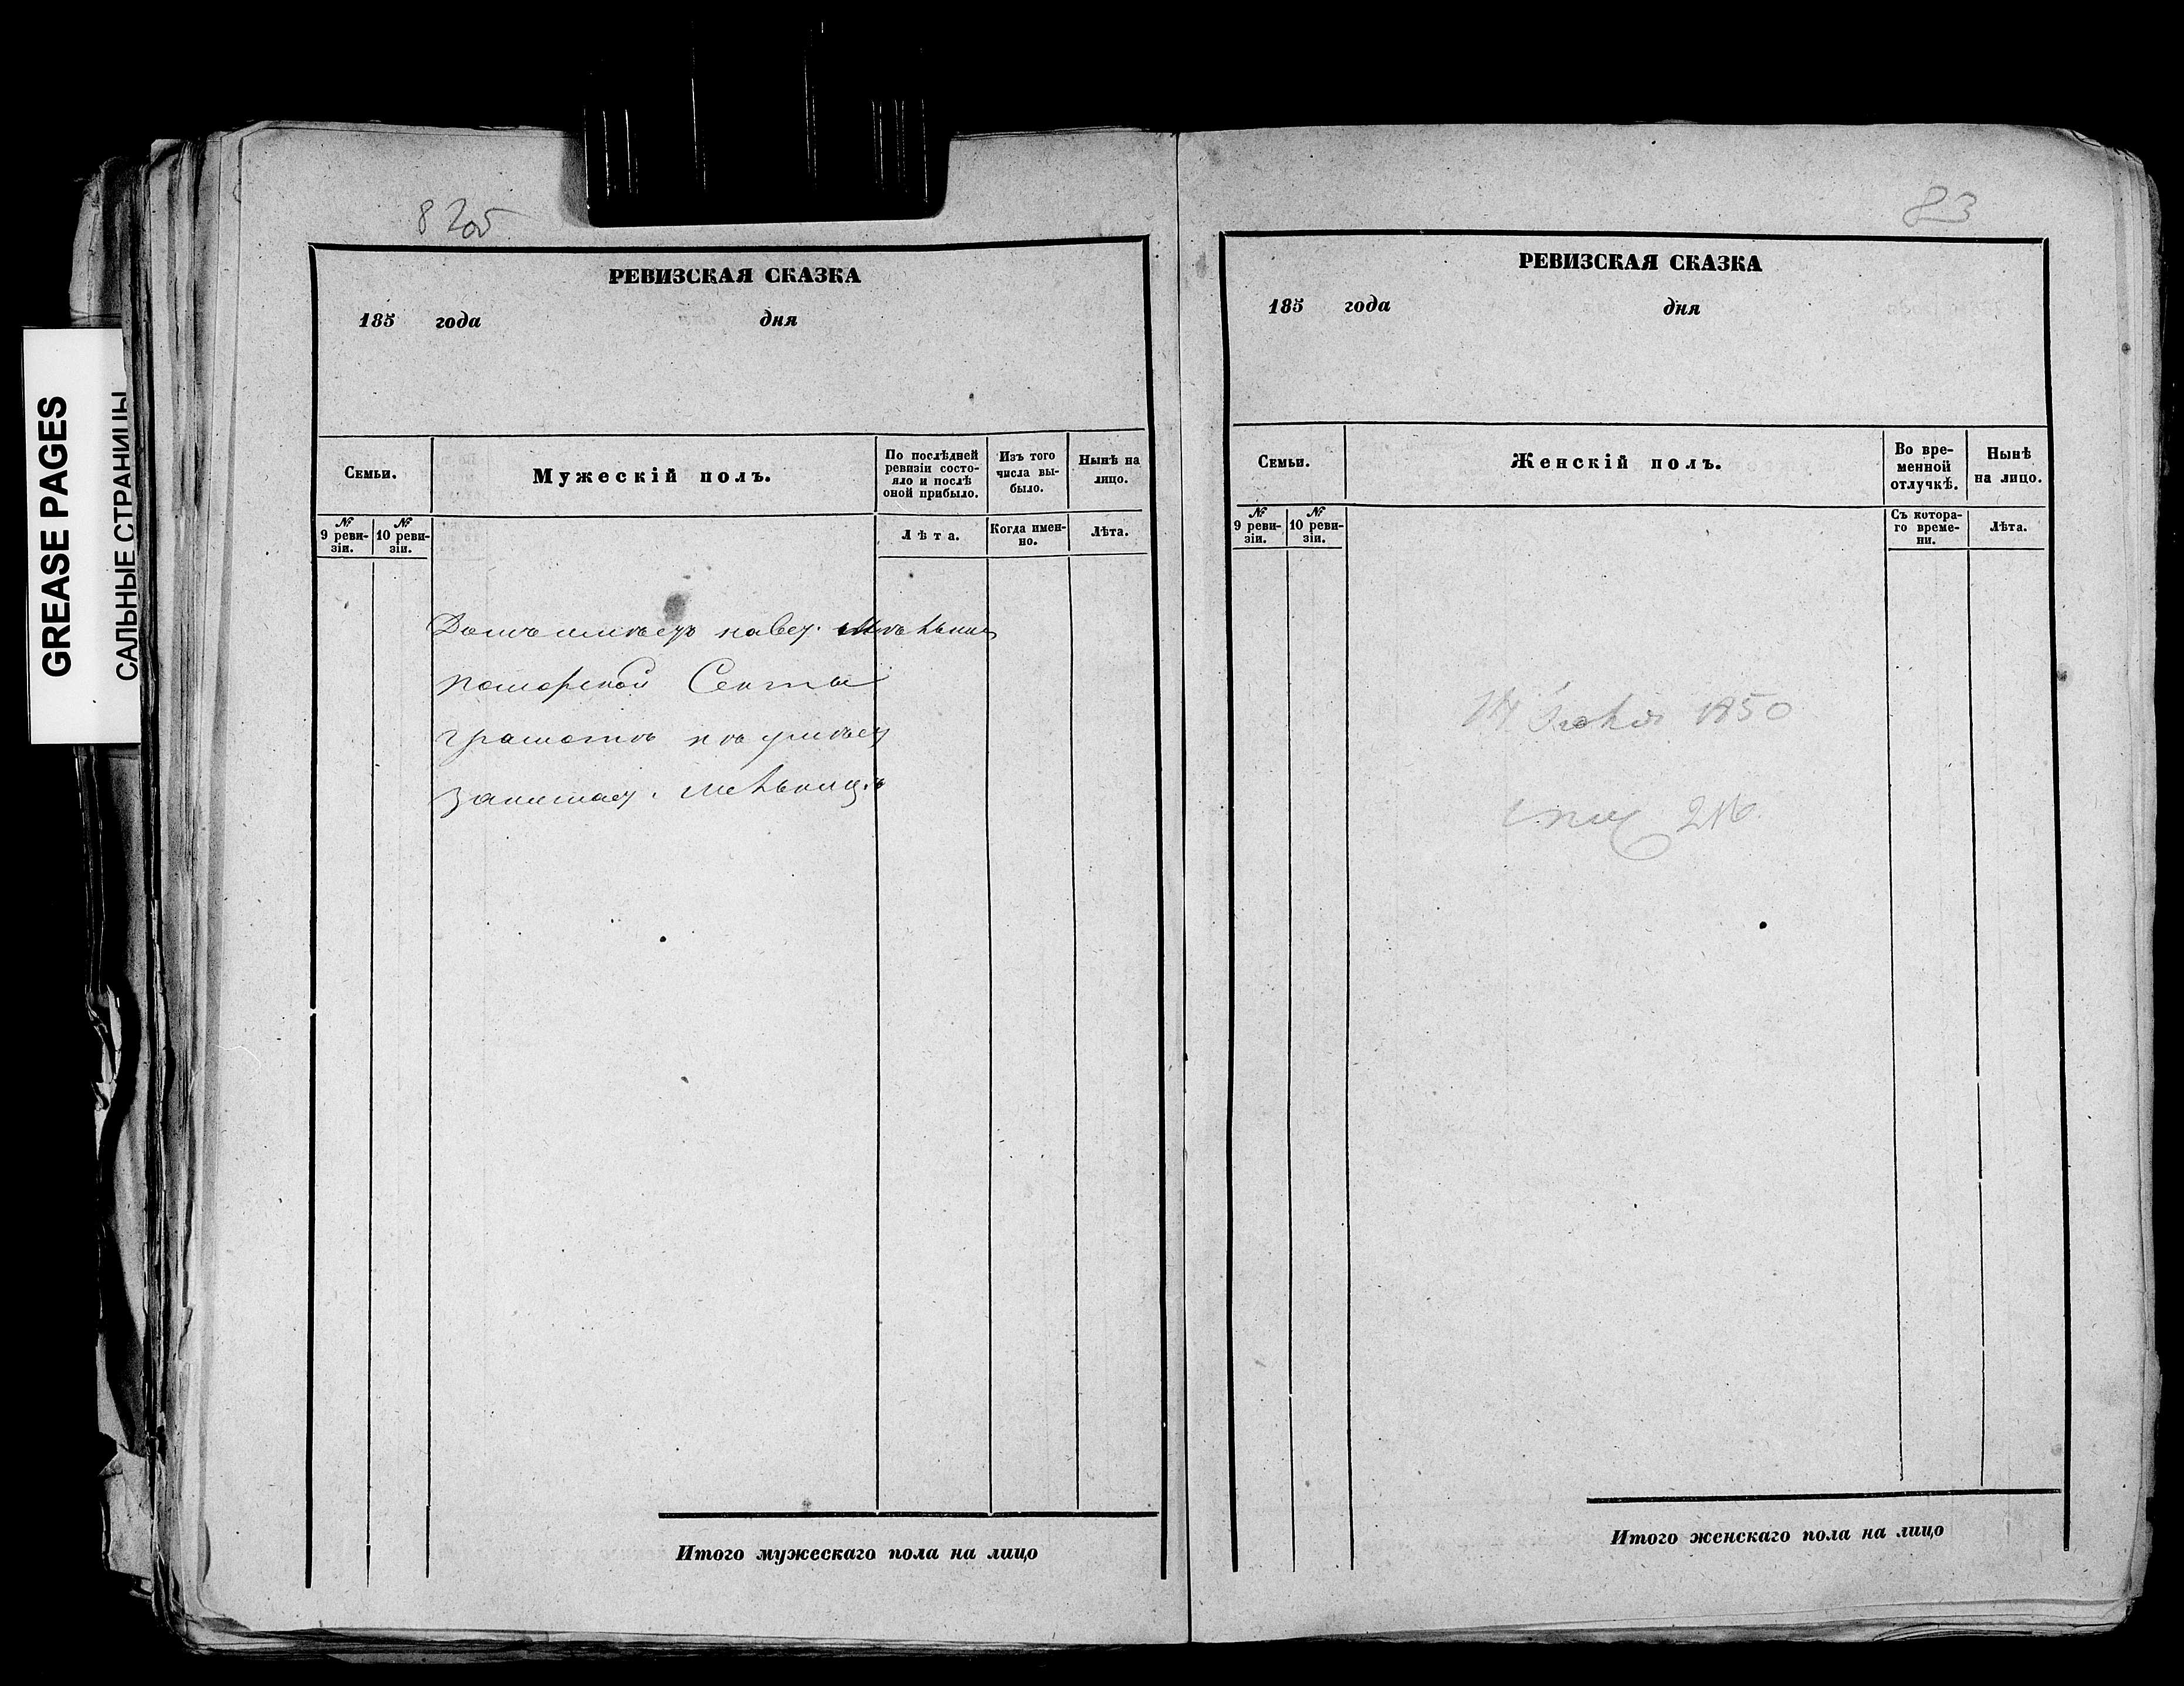 GREASE PAGES
САЛЬНЫЕ СТРАНИЦЫ
82об
РЕВИЗСКАЯ СКАЗКА
185 года дня
Семьи.
Мужескій полъ.
По послѣдней ревизіи состо-
яло и послѣ
оной прибыло.
Изъ того
числа вы-
было.
Нынѣ на
лицо.
№ 9 реви-
зіи.
№ 10 реви-
зіи.
Лѣта.
Когда имен-
но.
Лѣта.
Домъ имѣетъ
поморской Секты
грамотѣ не умѣет
занимает. мельниц.
Итого мужескаго пола на лицо
83
РЕВИЗСКАЯ СКАЗКА
185 года дня
Семьи.
Женскій полъ.
Во вре-
менной
отлучкѣ.
Нынѣ
на лицо.
№ 9 реви-
зіи.
№ 10 реви-
зіи.
Съ котора-
го време-
ни.
Лѣта.
1850
216
Итого женскаго пола на лицо